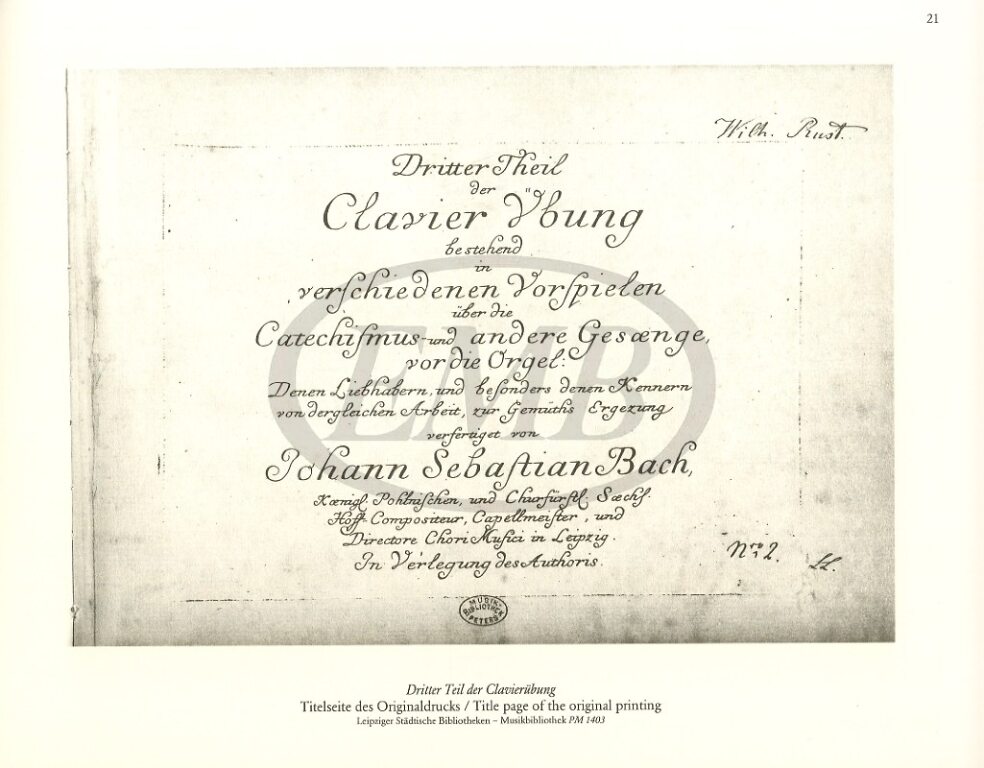 21
Wilh. Rust.
Dritter Theil
der
Clavier Übung
bestehend
in
verschiedenen Vorspielen
über die
Catechismus- und andere Gesænge,
vor die Orgel:
Denen Liebhabern, und besonders denen Kennern
von dergleichen Arbeit, zur Gemüths Ergezung
verfertiget von
Johann Sebastian Bach,
Kœnigl. Pohlnischen, und Churfürstl. Sæchs.
Hoff-Compositeur, Capellmeister, und
Directore Chori Musici in Leipzig.
In Verlegung des Authoris.
Nro 2.
EMB
MUSIK-
BIBLIOTHEK
PETERS
Dritter Teil der Clavierübung
Titelseite des Originaldrucks / Title page of the original printing
Leipziger Städtische Bibliotheken – Musikbibliothek PM 1403